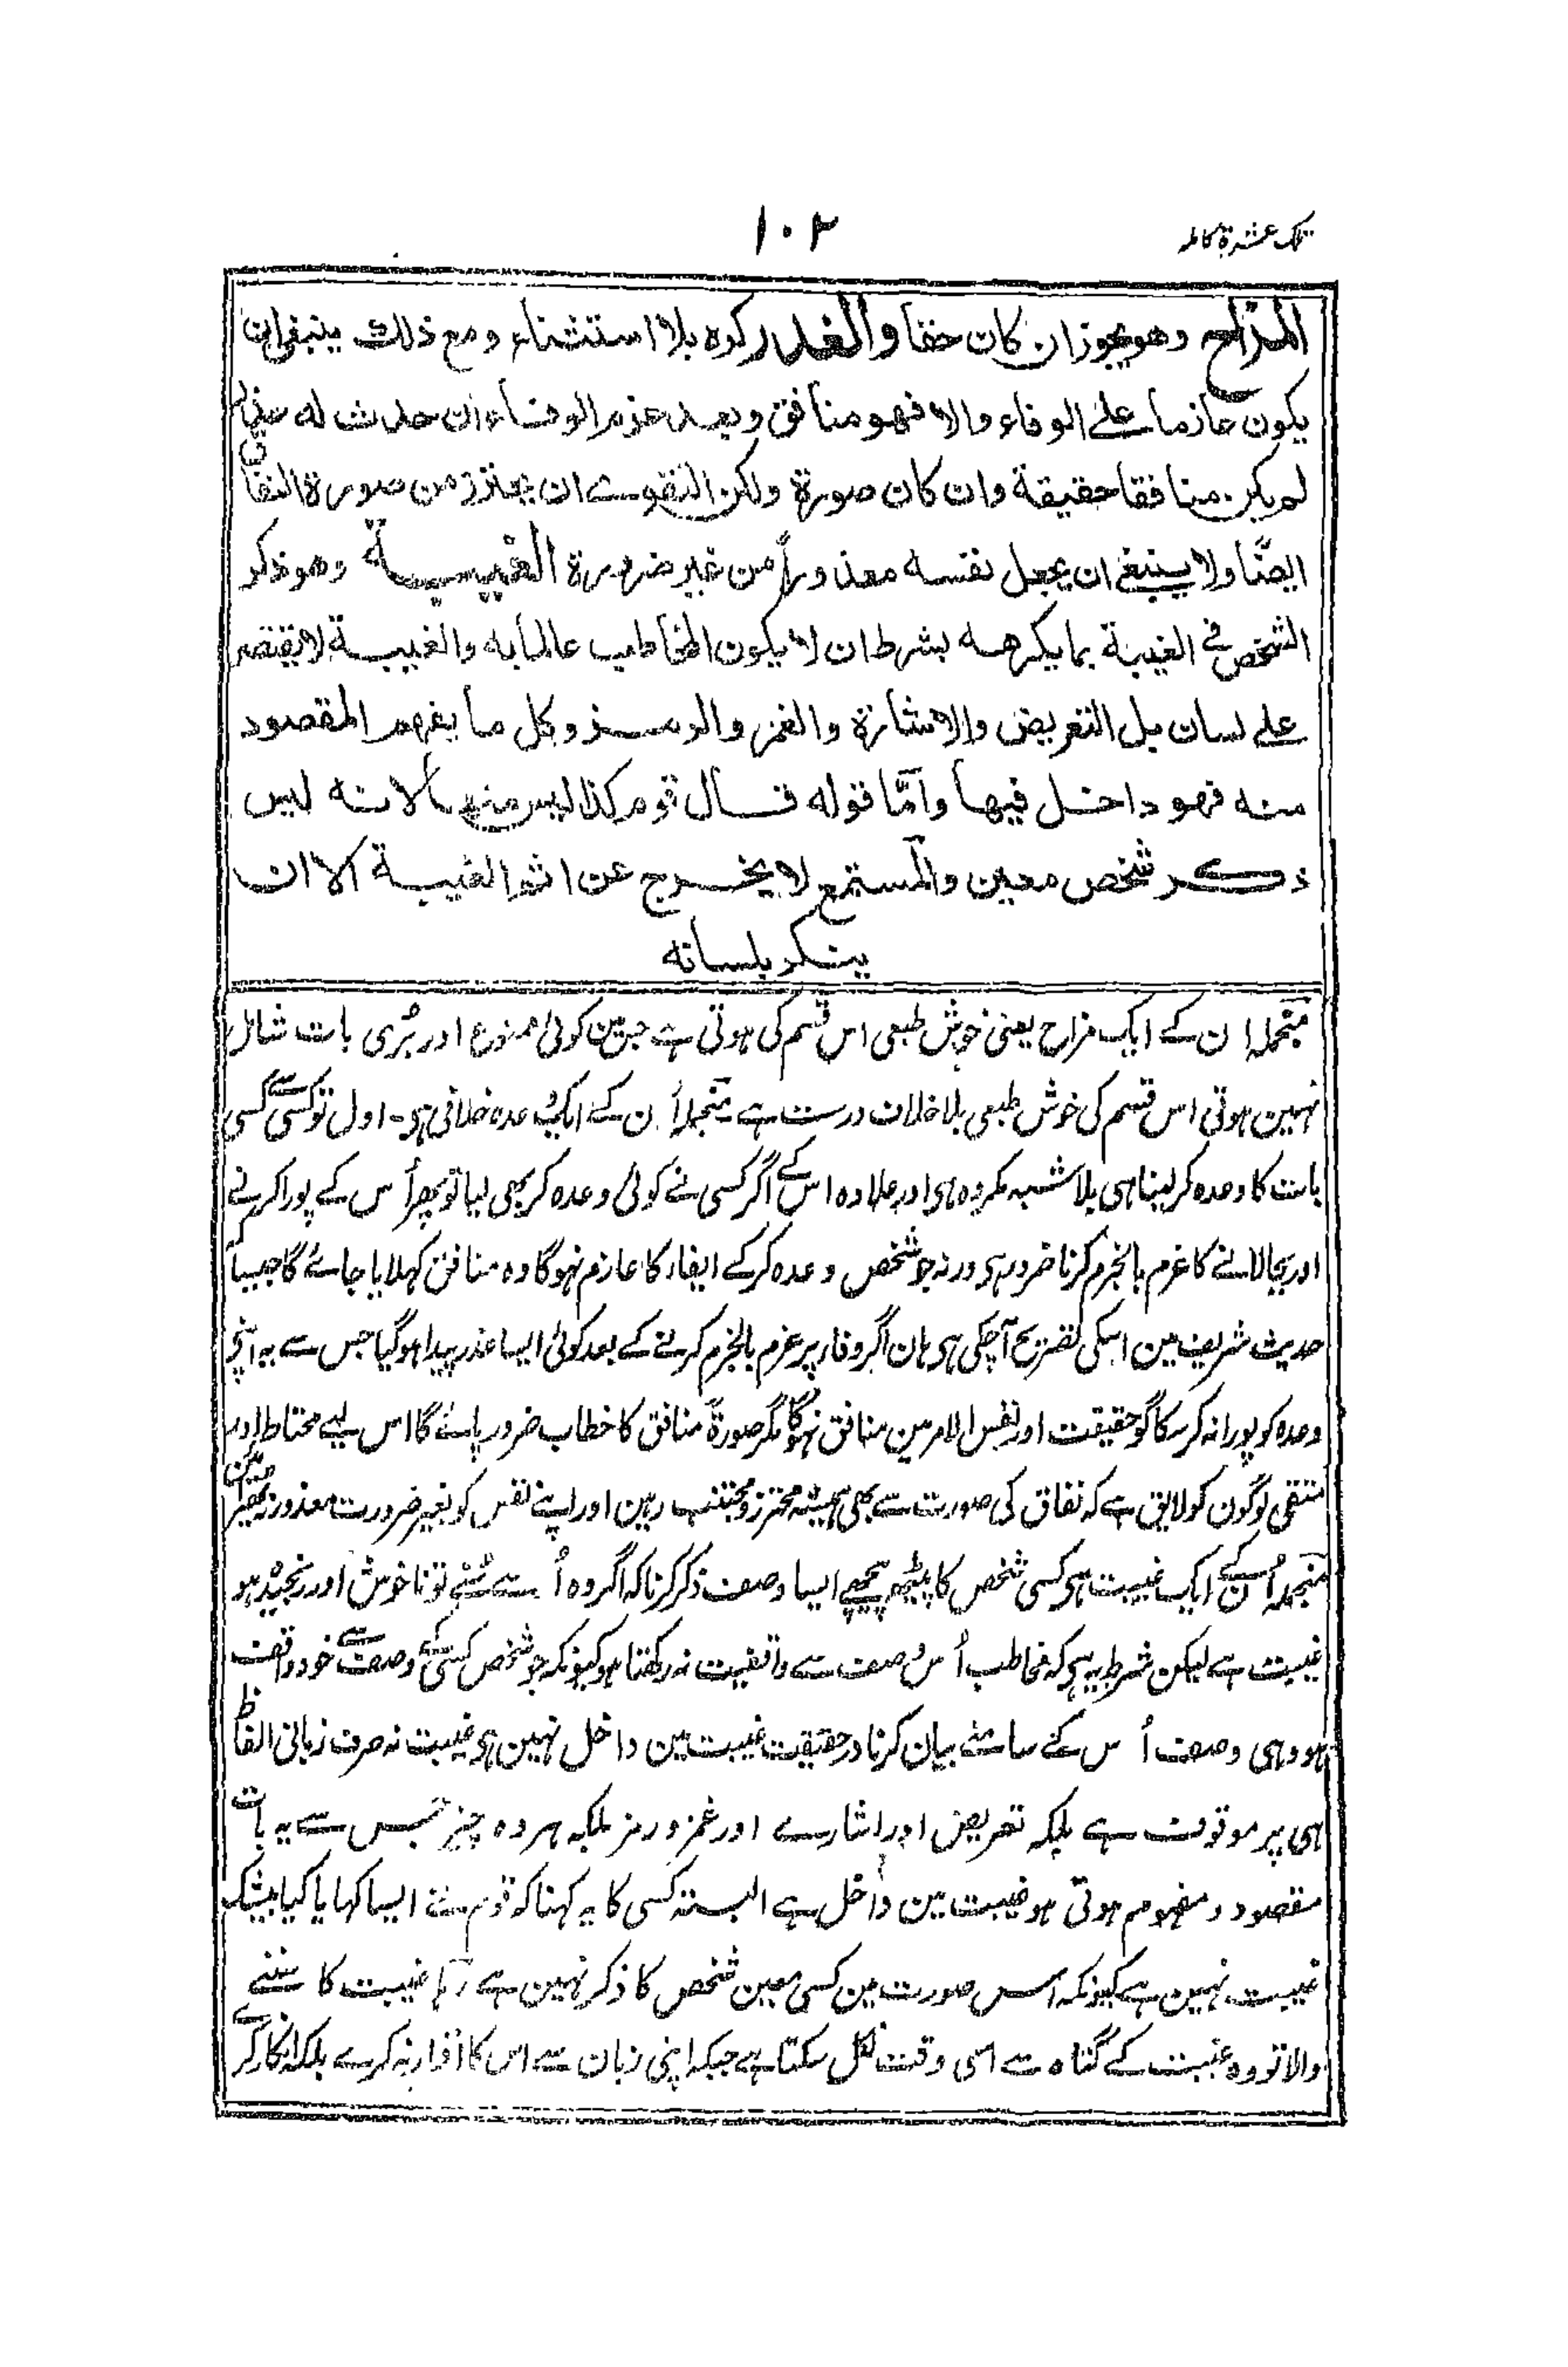 تلک عشرۃ کاملہ
۱۰۲
المزاح وهو يجوز ان كان حقا والغدر كره بلا استثناء ومع ذلك ينبغي ان
يكون جازما على الوفاء والا فهو منافق وبعد عزم الوفاء ان حدث له عذر
لم يكن منافقا حقيقة وان كان صورة ولكن التقوى ان يحترز من صورة النفاق
ايضا ولا ينبغي ان يجعل نفسه معذورا من غير ضرورة الغيبة وهو ذكر
الشخص في الغيبة بما يكرهه بشرط ان لا يكون المخاطب عالما به والغيبة لا تقتصر
على لسان بل التعريض والاشارة والغمز والرمز وكل ما يفهم المقصود
منه فهو داخل فيها وأما قوله قال قوم كذا ليس منها لانه ليس
ذكر شخص معين والمستمع لا يخرج عن اثم الغيبة الا ان
ينكر بلسانه
منجملہ ان کے ایک مزاح یعنی خوش طبعی اس قسم کی ہوتی ہے جسمین کوئی ممنوع اور بُری بات شامل
نہین ہوتی اس قسم کی خوش طبعی بلا خلاف درست ہے منجملہ اُن کے ایک وعدہ خلافی ہی۔ اول تو کسی سے کسی
بات کا وعدہ کر لینا ہی بلا شبہ مکروہ ہی اور علاوہ اس کے اگر کسی نے کوئی وعدہ کر بھی لیا تو پھر اُس کے پورا کرنے
اور بجا لانے کا عزم بالجزم کرنا ضرور ہی ورنہ جو شخص وعدہ کرکے ایفاء کا عازم نہوگا وہ منافق کہلایا جائے گا جیسا
حدیث شریف مین اسکی تصریح آچکی ہی ہان اگر وفا پر عزم بالجزم کرنے کے بعد کوئی ایسا عذر پیدا ہوگیا جس سے یہ اپنے
وعدہ کو پورا نہ کرسکا گو حقیقت اور نفس الامر مین منافق نہوگا مگر صورۃً منافق کا خطاب ضرور پائے گا اس لیے محتاط اور
متقی لوگون کو لایق ہے کہ نفاق کی صورت سے بھی ہمیشہ محترز و مجتنب رہین اور اپنے نفس کو بغیر ضرورت معذور نہ
منجملہ اُن کے ایک غیبت ہی کسی شخص کا پیٹھ پیچھے ایسا وصف ذکر کرنا کہ اگر وہ اُسے سُنے تو ناخوش اور رنجیدہ ہو
غیبت ہے لیکن شرط یہ ہی کہ مخاطب اُس وصف سے واقفیت نہ رکھتا ہو کیونکہ جو شخص کسی کے وصف سے خود واقف
ہو وہی وصف اُس کے سامنے بیان کرنا درحقیقت غیبت مین داخل نہین ہی غیبت نہ صرف زبانی الفاظ
ہی پر موقوف ہے بلکہ تعریض اور اشارے اور غمز و رمز بلکہ ہر وہ چیز جس سے یہ بات
مقصود و مفہوم ہوتی ہو غیبت مین داخل ہے البتہ کسی کا یہ کہنا کہ قوم نے ایسا کہا یا کیا بیشک
غیبت نہین ہے کیونکہ اس صورت مین کسی معین شخص کا ذکر نہین ہے رہا غیبت کا سننے
والا تو وہ غیبت کے گناہ سے اسی وقت نکل سکتا ہے جبکہ اپنی زبان سے اس کا اقرار نہ کرے بلکہ انکار کرے